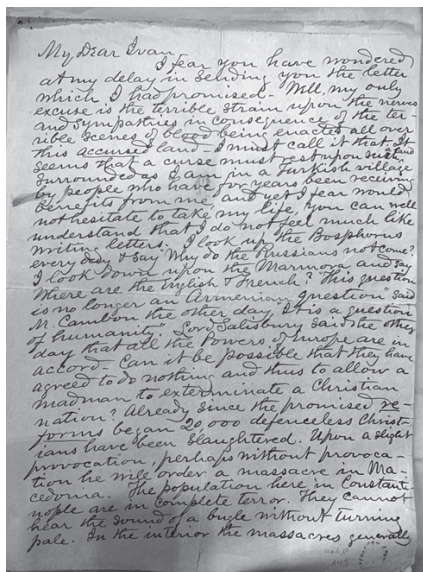 My Dear Ivan,
I fear you have wondered
at my delay in sending you the letter
which I had promised. Well, my only
excuse is the terrible strain upon the nerves
and sympathies in consequence of the ter-
rible scenes of blood being enacted all over
this accursed land - I must call it that. It
seems that a curse must rest upon such a land
surrounded as I am in a Turkish village
by people who have for years been receiving
benefits from me, and yet I fear would
not hesitate to take my life, you can well
understand that I do not feel much like
writing letters. I look up the Bosphorus
every day & say "Why do the Russians not come?
I look down upon the Marmora and say
Where are the English & French? "This question
is no longer an Armenian question said
M. Cambon the other day. It is a question
of humanity". Lord Salisbury said the other
day that all the Powers of Europe are in
accord - Can it be possible that they have
agreed to do nothing and thus to allow a
madman to exterminate a Christian
nation? Already since the promised re-
forms began 20,000 defenceless Christ-
ians have been slaughtered. Upon a slight
provocation, perhaps without provoca-
tion he will order a massacre in Ma-
cedonia. The population here in Constanti-
nople are in complete terror. They cannot
hear the sound of a bugle without turning
pale. In the interior the massacres generally